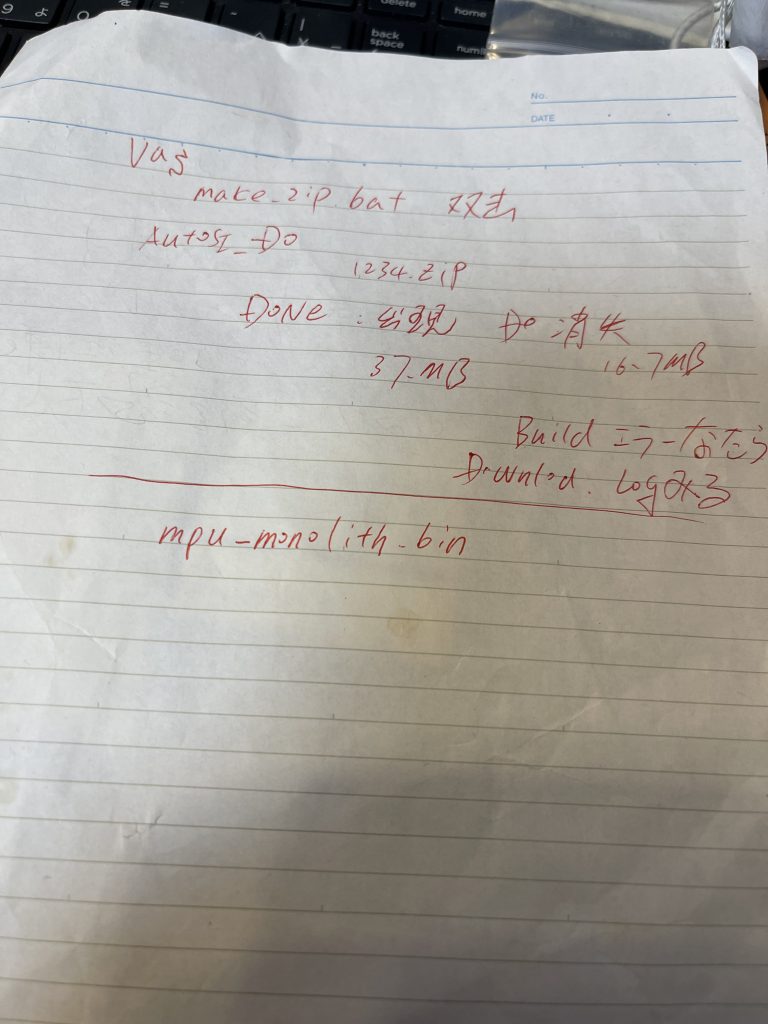 delete
home
back space
num
No.
DATE
Vag
make-zip.bat 双击
AutoSI_Do
1234.zip
DONE : 出现 Do 消失
37.MB 16.7MB
Build エラーなたら
Download. log みる
mpu-monolith.bin